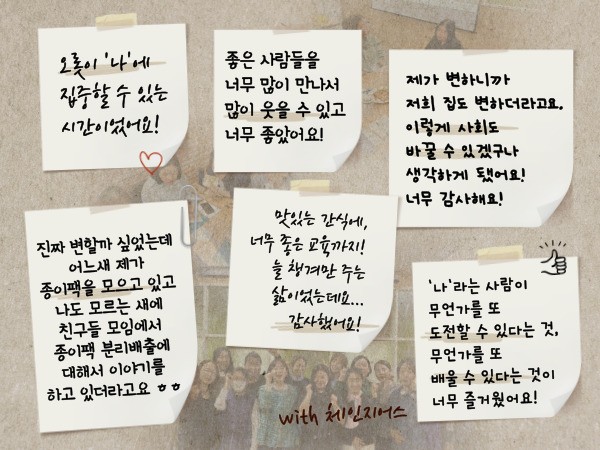 오롯이 '나'에
집중할 수 있는
시간이었어요!
좋은 사람들을
너무 많이 만나서
많이 웃을 수 있고
너무 좋았어요!
제가 변하니까
저희 집도 변하더라고요.
이렇게 사회도
바꿀 수 있겠구나
생각하게 됐어요!
너무 감사해요!
진짜 변할까 싶었는데
어느새 제가
종이팩을 모으고 있고
나도 모르는 새에
친구들 모임에서
종이팩 분리배출에
대해서 이야기를
하고 있더라고요 ㅎㅎ
맛있는 간식에,
너무 좋은 교육까지!
늘 챙겨만 주는
삶이었는데요...
감사했어요!
'나'라는 사람이
무언가를 또
도전할 수 있다는 것,
무언가를 또
배울 수 있다는 것이
너무 즐거웠어요!
with 체인지어스